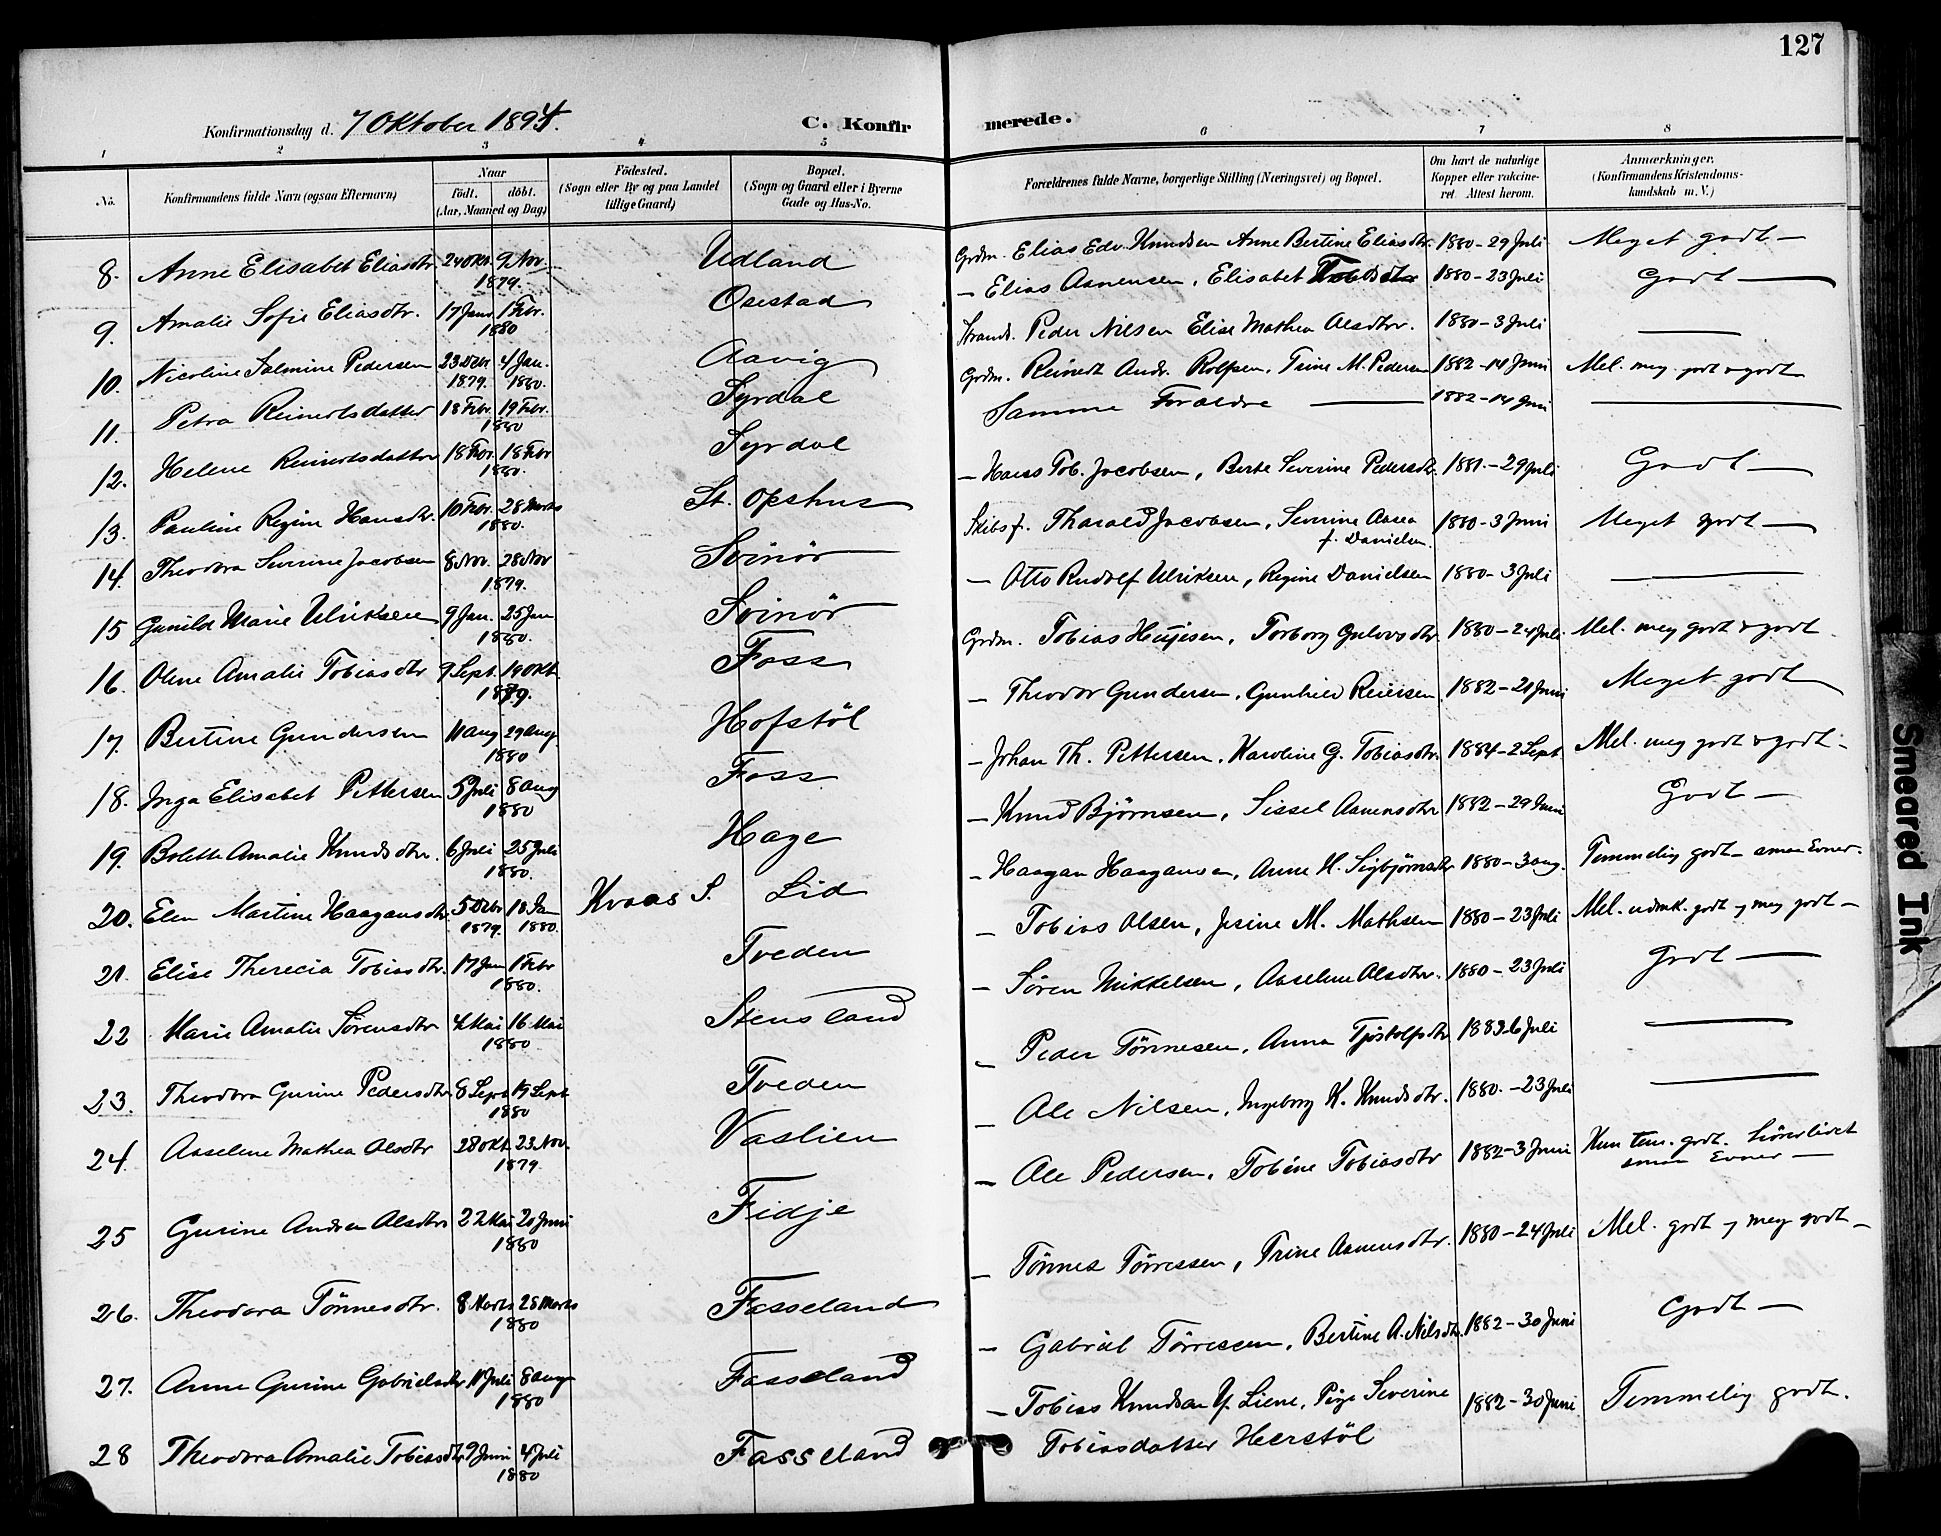 127
Konfirmationsdag d. 7 Oktober 1894. C. Konfirmerede.
1 2 3 4 5 6 7 8
No. Konfirmandens fulde Navn (ogsaa Efternavn) Naar Født. døbt. (Aar, Maaned og Dag) Fødested. (Sogn eller By og paa Landet tillige Gaard) Bopæl. (Sogn og Gaard eller i Byerne Gade og Hus-No. Forældrenes fulde Navne, borgerlige Stilling (Næringsvei) og Bopæl. Om havt de naturlige Kopper eller vakcineret Attest herom. Anmærkninger. (Konfirmandens Kristendomskundskab m. V.)
8. Anne Elisabet Eliasdtr. 24 Okt. 9 Nov. 1879. Udland Grdm. Elias Edv. Knudsen Anne Bertine Eliasdtr. 1880-29 Juli Meget godt —
9. Amalie Sofie Eliasdtr. 17 Janr 1 Febr. 1880 Osestad — Elias Aanensen, Elisabet 1880-23 Juli Godt —
10. Nicoline Salmine Pedersen 23 Dcbr 1879. 4 Jan. 1880. Aavig Strands. Peder Nilsen Elise Mathea Olsdtr. 1880-3 Juli —
11. Petra Reinertsdatter 18 Febr. 19 Febr. 1880 Syrdal Grdm. Reinert Andr. Rolfsen, Trine M. Pedersen 1882-14 Juni Mel. meg. godt & godt
12. Helene Reinertsdatter 18 Febr. 18 Febr 1880. Syrdal Samme Forældre — 1882-14 Juni —
13. Pauline Regine Hansdtr. 10 Febr. 28 Marts 1880. St. Opshus — Hans Tob. Jacobsen, Berte Severine Pedersdtr. 1881-29 Juli Godt —
14. Theodora Severine Jacobsen 8 Nov. 28 Nov 1879. Svinör Skibsf. Tharald Jacobsen, Severine Aasea f. Danielsen. 1880-3 Juni Meget godt —
15 Gunild Marie Ulriksen 9 Jan. 25 Jan 1880. Svinör — Otto Rudolf Ulriksen, Regine Danielsen 1880-3 Juli —
16. Oline Amalie Tobiasdtr 9 Sept. 19 Okt. 1879. Foss Grdm. Tobias Torborg Gulovsdtr. 1880-24 Juli Mel. meg godt & godt
17. Bertine Gundersen 11 Aug 29 Aug. 1880 Hofstöl — Theodor Gundersen, Gunhild Reiersen, 1882-21 Juni Meget godt
18. Inga Elisabet Pettersen 5 Juli 8 Aug 1880 Foss — Johan Th. Pettersen, Karoline G. Tobiasdtr. 1884-2 Sept. Mel. meg godt & godt —
19. Bolette Amalie Knudsdtr. 6 Juli 25 Juli 1880. Hage — Knud Björnsen, Sissel Aanensdtr 1882-29 Juni Godt —
20. Elen Martine Haagansdtr. 5 Dcbr 1879. 18 Jan 1880. Kvaas S. Lid — Haagan Haagansen, Anne H. Sigbjörnsdtr. 1880-3 Aug. Temmelig godt — smaa Evner.
21. Elise Therecia Tobiasdtr. 17 Jan 1 Febr 1880. Tveden — Tobias Olsen, Jesine M. Mathsen 1880-23 Juli Mel. udmk. godt og meg godt —
22 Marie Amalie Sörensdtr 4 Mai 16 Mai 1880 Stensland — Sören Mikkelsen, Aaselene Olsdtr. 1880-23 Juli Godt —
23. Theodora Gurine Pedersdtr. 8 Sept 19 Sept 1880 Tveden — Peder Tönnesen, Anna Tjöstolfsdtr. 1883 6 Juli —
24. Aaselene Mathea Olsdtr 28 Okt. 23 Nov. 1879. Vaslien — Ole Nilsen, Ingeborg K. Knudsdtr. 1880-23 Juli —
25 Gurine Andrea Olsdtr 22 Mai 20 Juni 1880 Fidje — Ole Pedersen, Tobine Tobiasdtr 1882-3 Juni Kun tem. godt. smaa Evner —
26. Theodora Tönnesdtr. 8 Marts 28 Marts 1880 Fasseland — Tönnes Törressen, Trine Aanensdtr. 1880-24 Juli Mel. godt og meg godt —
27. Anne Gurine Gabrielsdtr 11 Juli 8 Aug 1880 Fasseland — Gabriel Törressen, Bertine A. Nilsdtr. 1882-30 Juni Godt —
28 Theodora Amalie Tobiasdtr 9 Juni 4 Juli 1880 Fasseland — Tobias Knudsen Severine Tobiasdatter Heerstöl 1882-30 Juni. Temmelig godt.
Smeared Ink